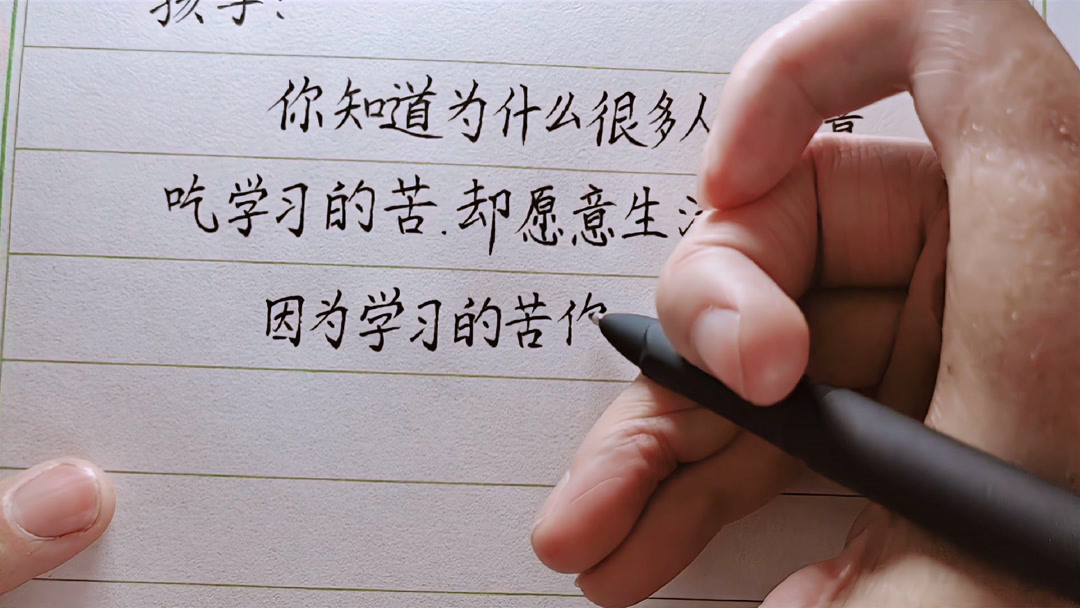 你知道为什么很多人
吃学习的苦.却愿意生
因为学习的苦你